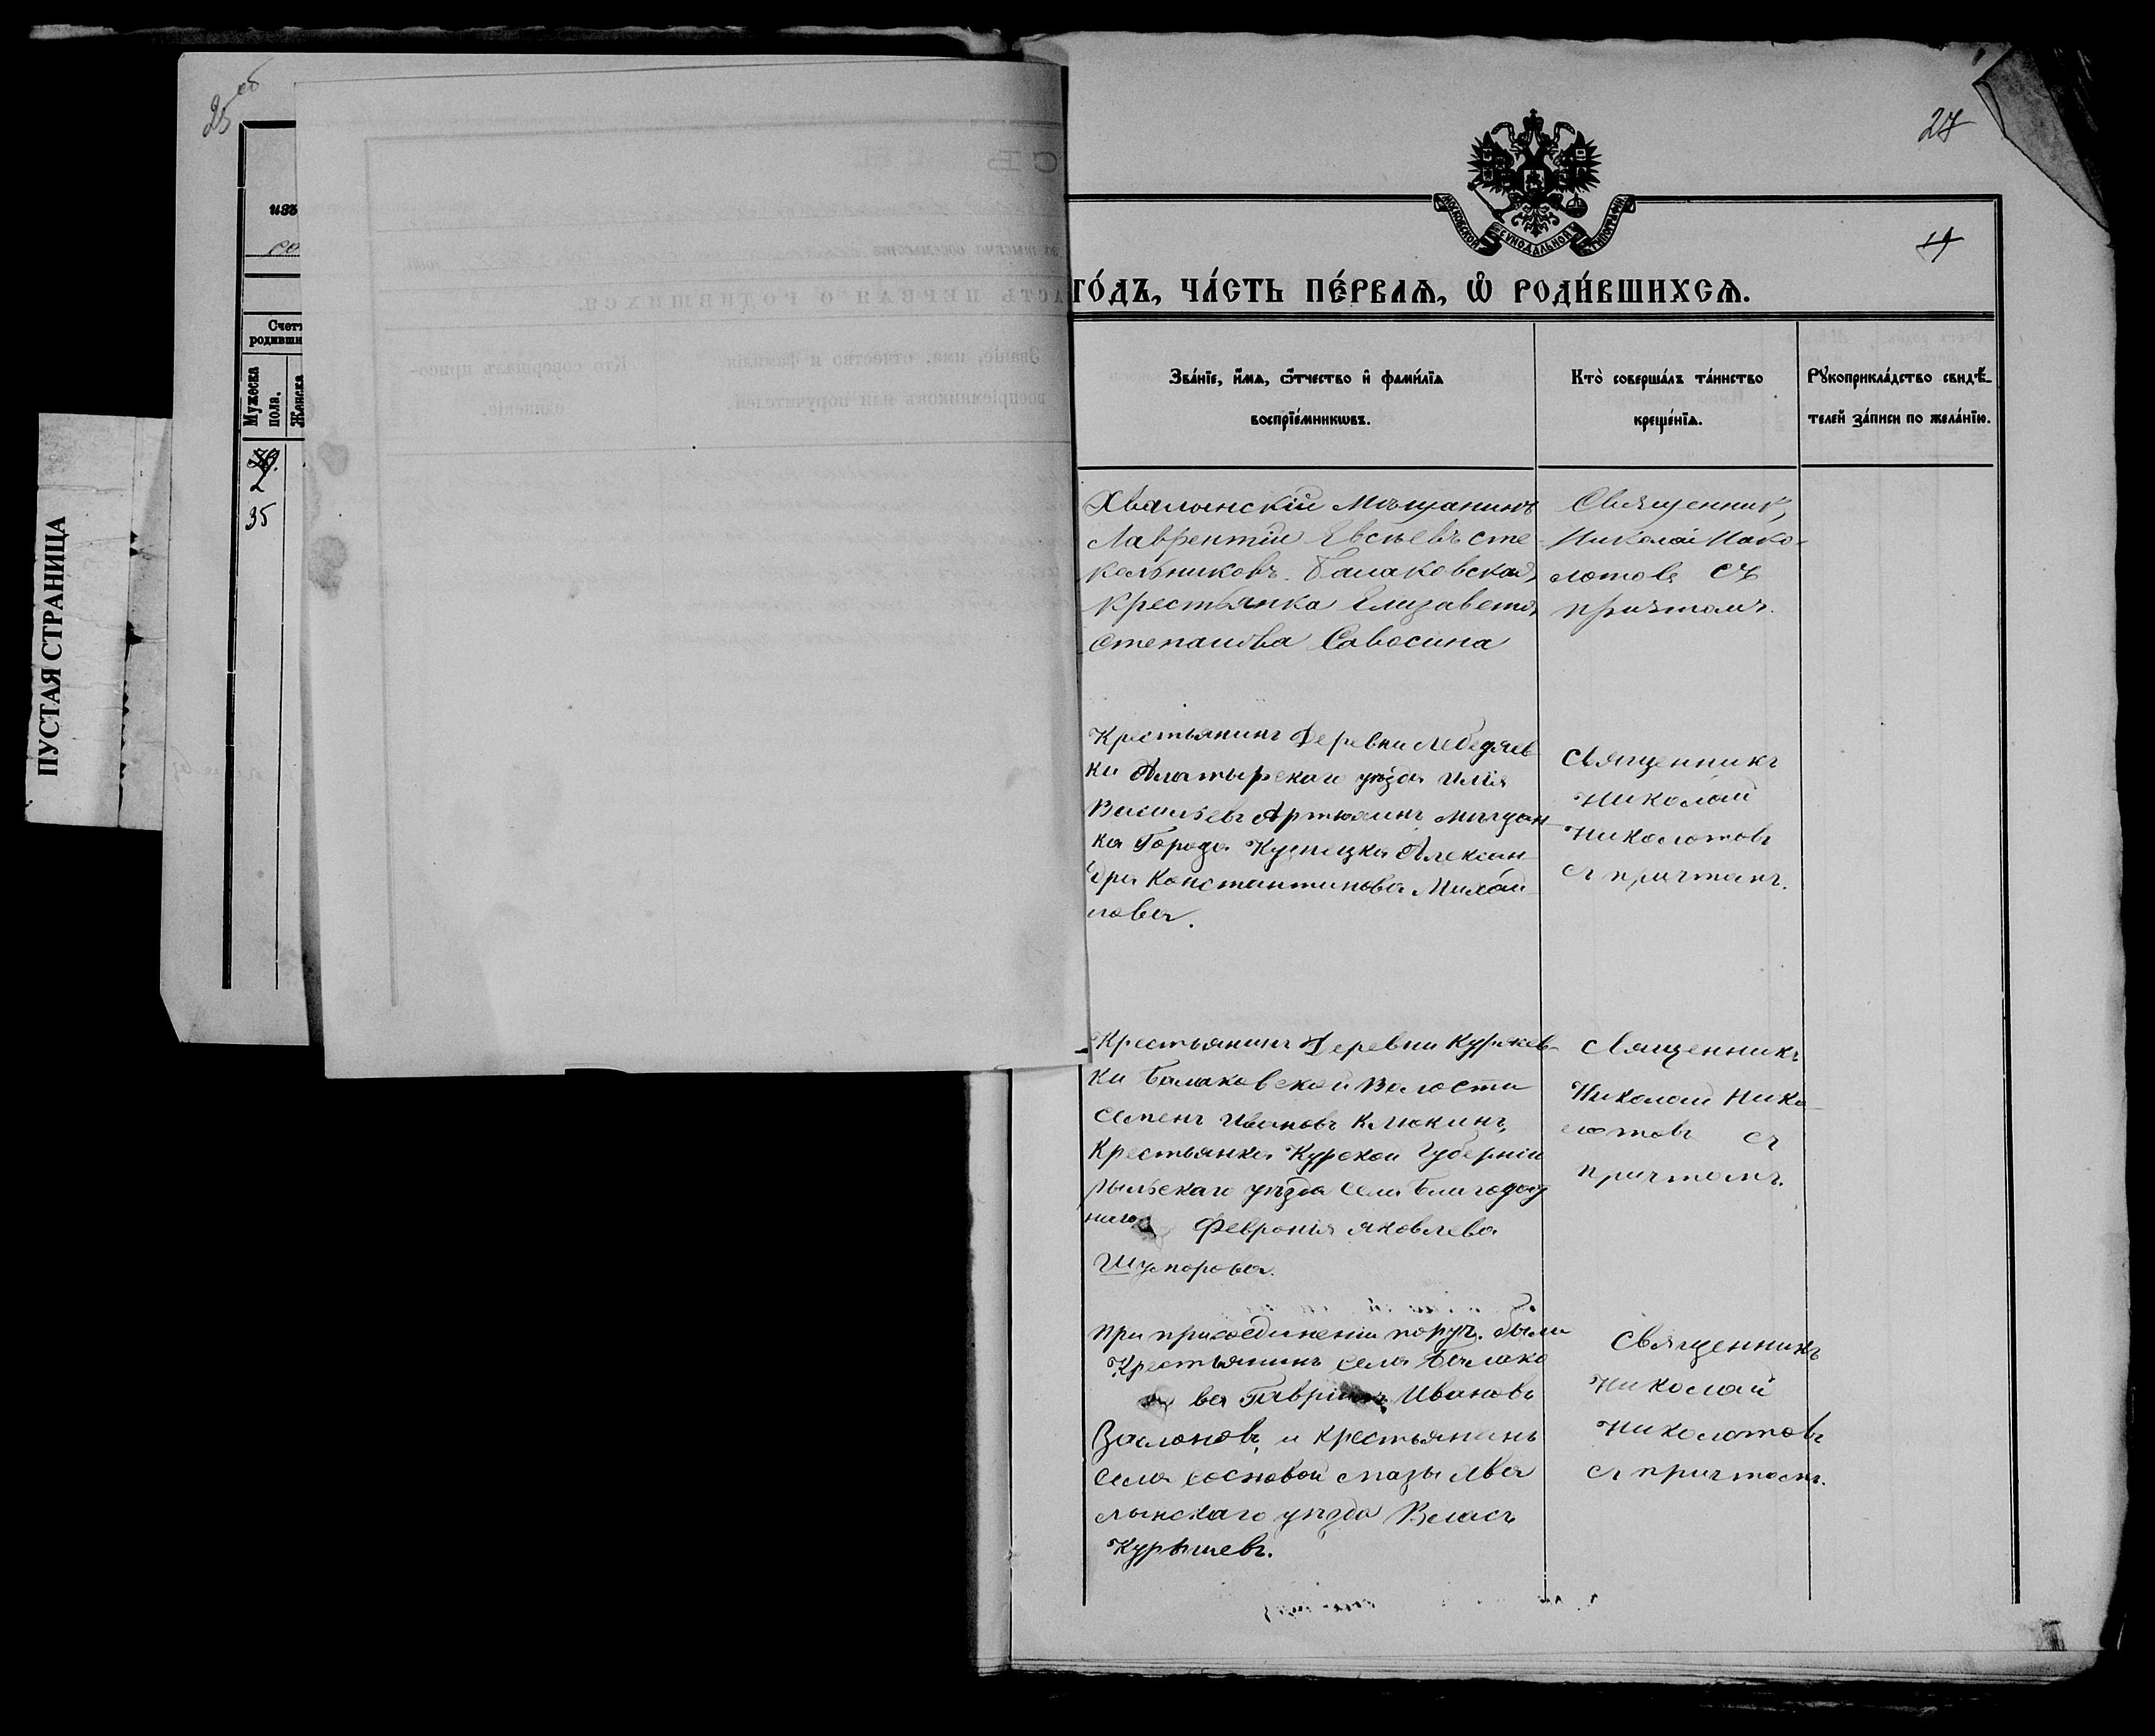 ПУСТАЯ СТРАНИЦА
25 об
изъ
Счетъ
родивши
Мужеска
пола.
Женска
2
35
27
МОСКОВСКОЙ СѴНОДАЛЬНОЙ ТИПОГРАФІИ
19
ГО́ДЪ, ЧА́СТЬ ПЕ́РВАѦ, Ѡ҆ РОДИ́ВШИХСѦ.
Зва́нїе, и҆́мѧ, ѻ҆́тчество и҆ фами́лїѧ
воспрїе́мникѡвъ.
Кто̀ соверша́лъ та́инство
креще́нїѧ.
Рꙋкоприкла́дство свидѣ́-
телей за́писи по жела́нїю.
Хвалынскій Мѣщанинъ
Лаврентій Евсѣевъ Сте-
кольниковъ. Балаковская
крестьянка Елизавета
Степанова Савосина
Священник
Николай Нико-
лотовъ съ
причтомъ.
Крестьянинъ Деревни Лебедяев
ки Алатырскаго уѣзда Илія
Васильевъ Артюхинъ, мѣщан
ка Города Кузнецка Алексан
дра Константинова Михай
лова.
Священникъ
Николай
Николотовъ
съ причтомъ.
Крестьянинъ Деревни Куржев-
ки Балаковской Волости
Семенъ Ивановъ Клюкинъ,
Крестьянка Курской Губерніи
Рыльскаго уѣзда Села Благодат
наго Февронія Яковлева
Священникъ
Николай Нико
лотовъ съ
причтомъ.
При присоединеніи поруч. были
Крестьянинъ села Балако
ва Гавріилъ Ивановъ
Заслоновъ, и крестьянинъ
села Сосновой Мазы Хва
лынскаго уѣзда Власъ
Курышевъ.
Священникъ
Николай
Николотовъ
съ причтомъ.